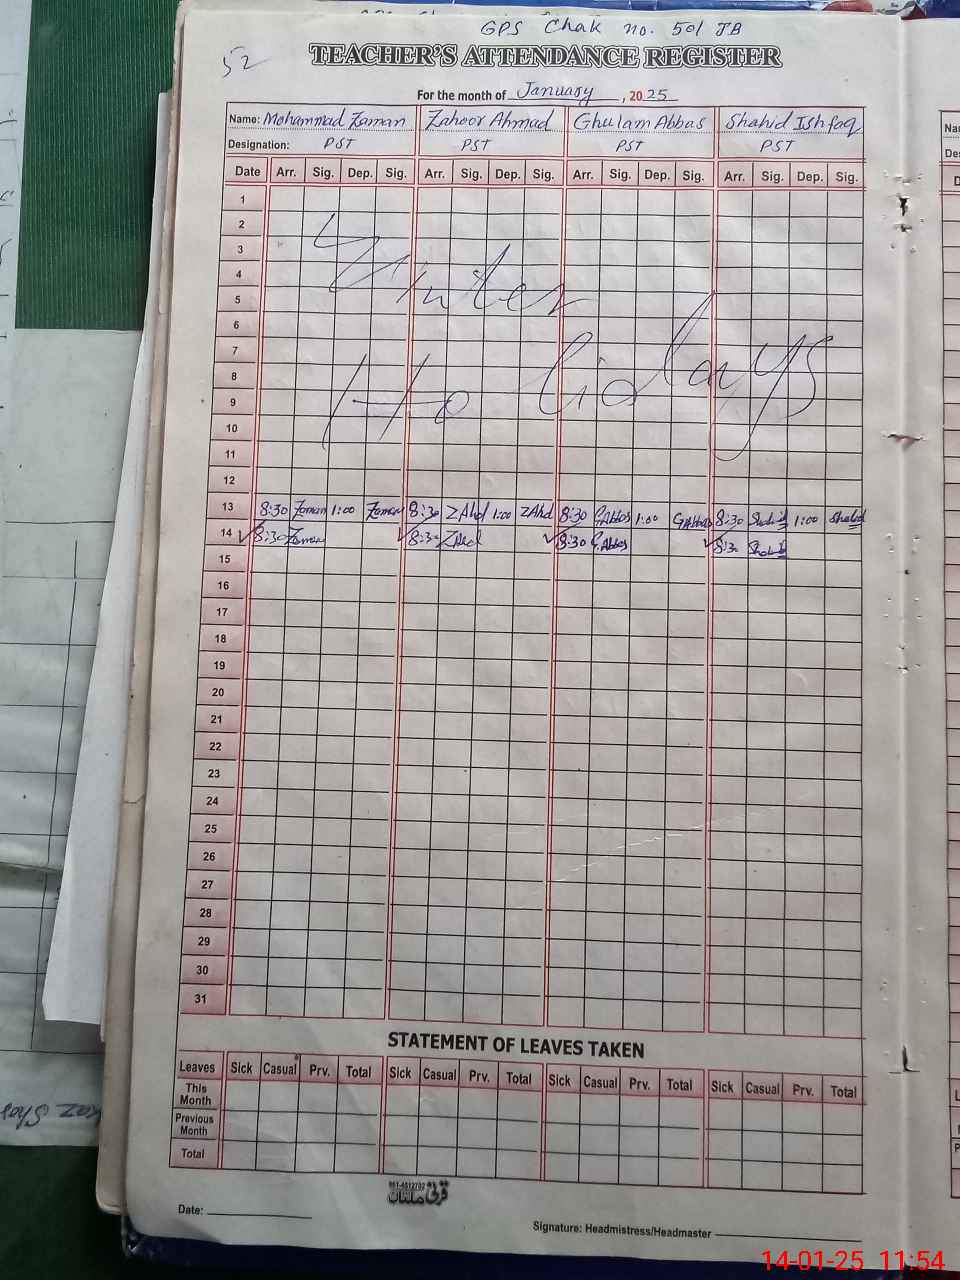 GPS Chak no. 501 JB
52
TEACHER'S ATTENDANCE REGISTER
For the month of January, 2025
Name: Mohammad Zaman Zahoor Ahmad Ghulam Abbas Shahid Ishfaq
Designation: PST PST PST PST
Date Arr. Sig. Dep. Sig. Arr. Sig. Dep. Sig. Arr. Sig. Dep. Sig. Arr. Sig. Dep. Sig.
1
2
3
4
5
6
7
8
9
10
11
12
Winter
Holidays
13 8:30 Zaman 1:00 Zaman 8:30 ZAhd 1:00 ZAhd 8:30 G.Abbas 1:00 G.Abbas 8:30 Shahid 1:00 Shahid
14 8:30 Zaman 8:30 ZAhd 8:30 G.Abbas 8:30 Shahid
15
16
17
18
19
20
21
22
23
24
25
26
27
28
29
30
31
STATEMENT OF LEAVES TAKEN
Leaves Sick Casual Prv. Total Sick Casual Prv. Total Sick Casual Prv. Total Sick Casual Prv. Total
This Month
Previous Month
Total
Date:
Signature: Headmistress/Headmaster
14-01-25 11:54